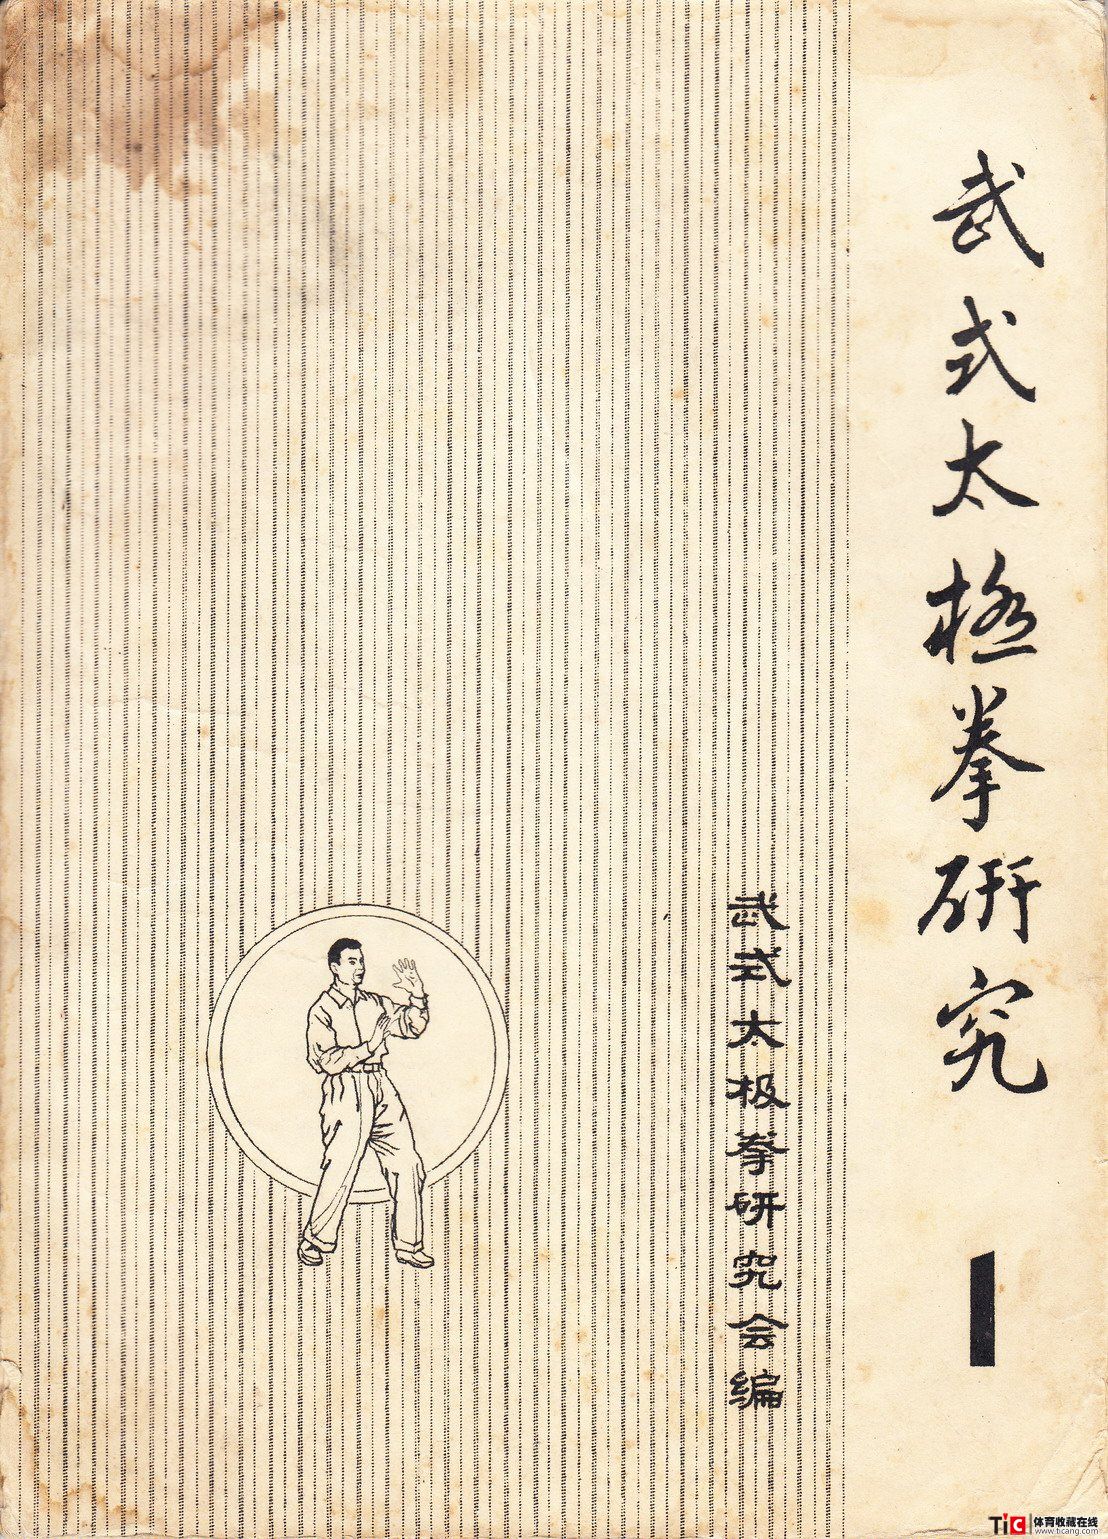 武式太极拳研究
1
武式太极拳研究会编
TiC 体育收藏在线
www.ticang.com